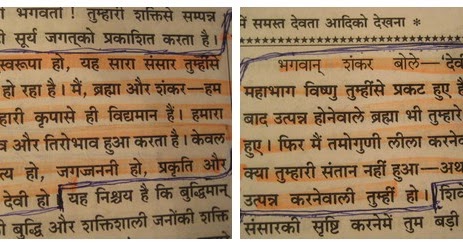 भगवती ! तुम्हारी शक्तिसे सम्पन्न
सूर्य जगत्को प्रकाशित करता है।
स्वरूपा हो, यह सारा संसार तुम्हींसे
हो रहा है। मैं, ब्रह्मा और शंकर—हम
हारी कृपासे ही विद्यमान हैं। हमारा
व और तिरोभाव हुआ करता है। केवल
त्य हो, जगज्जननी हो, प्रकृति और
देवी हो। यह निश्चय है कि बुद्धिमान्
बुद्धि और शक्तिशाली जनोंकी शक्ति
में समस्त देवता आदिको देखना *
भगवान् शंकर बोले—'देवि
महाभाग विष्णु तुम्हींसे प्रकट हुए हैं
बाद उत्पन्न होनेवाले ब्रह्मा भी तुम्हारे
हुए। फिर मैं तमोगुणी लीला करने
क्या तुम्हारी संतान नहीं हुआ—अथ
उत्पन्न करनेवाली तुम्हीं हो। शिवे
संसारकी सृष्टि करनेमें तुम बड़ी